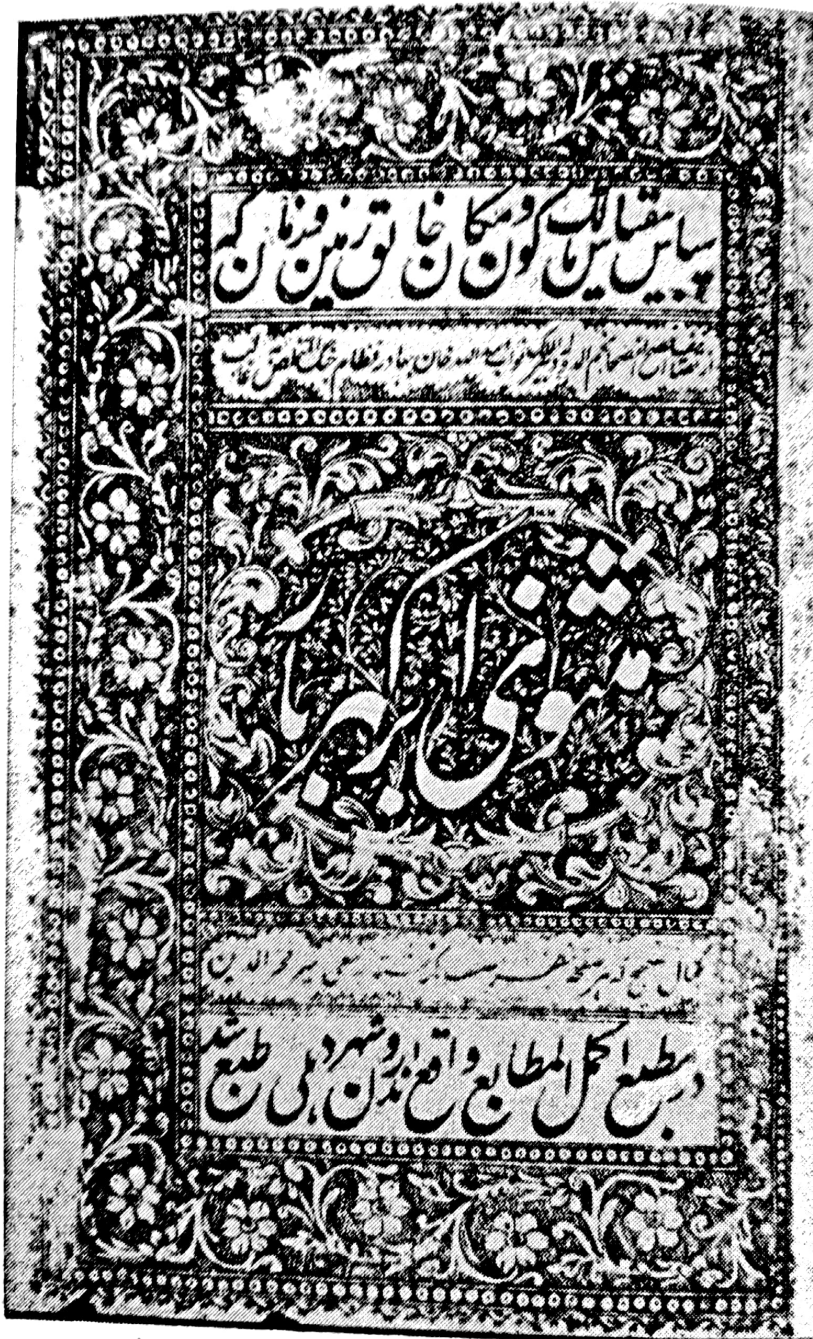 سپاس بیقیاس مالک کون و مکان خالق زمین و زمان که
از نتایج نجم الدوله دبیر الملک نواب اسد الله خان بهادر نظام جنگ المتخلص غالب
مثنوی ابر گہر بار
کمال بسعی میر فخر الدین
در مطبع اکمل المطابع واقع اندرون شہر دہلی طبع شد